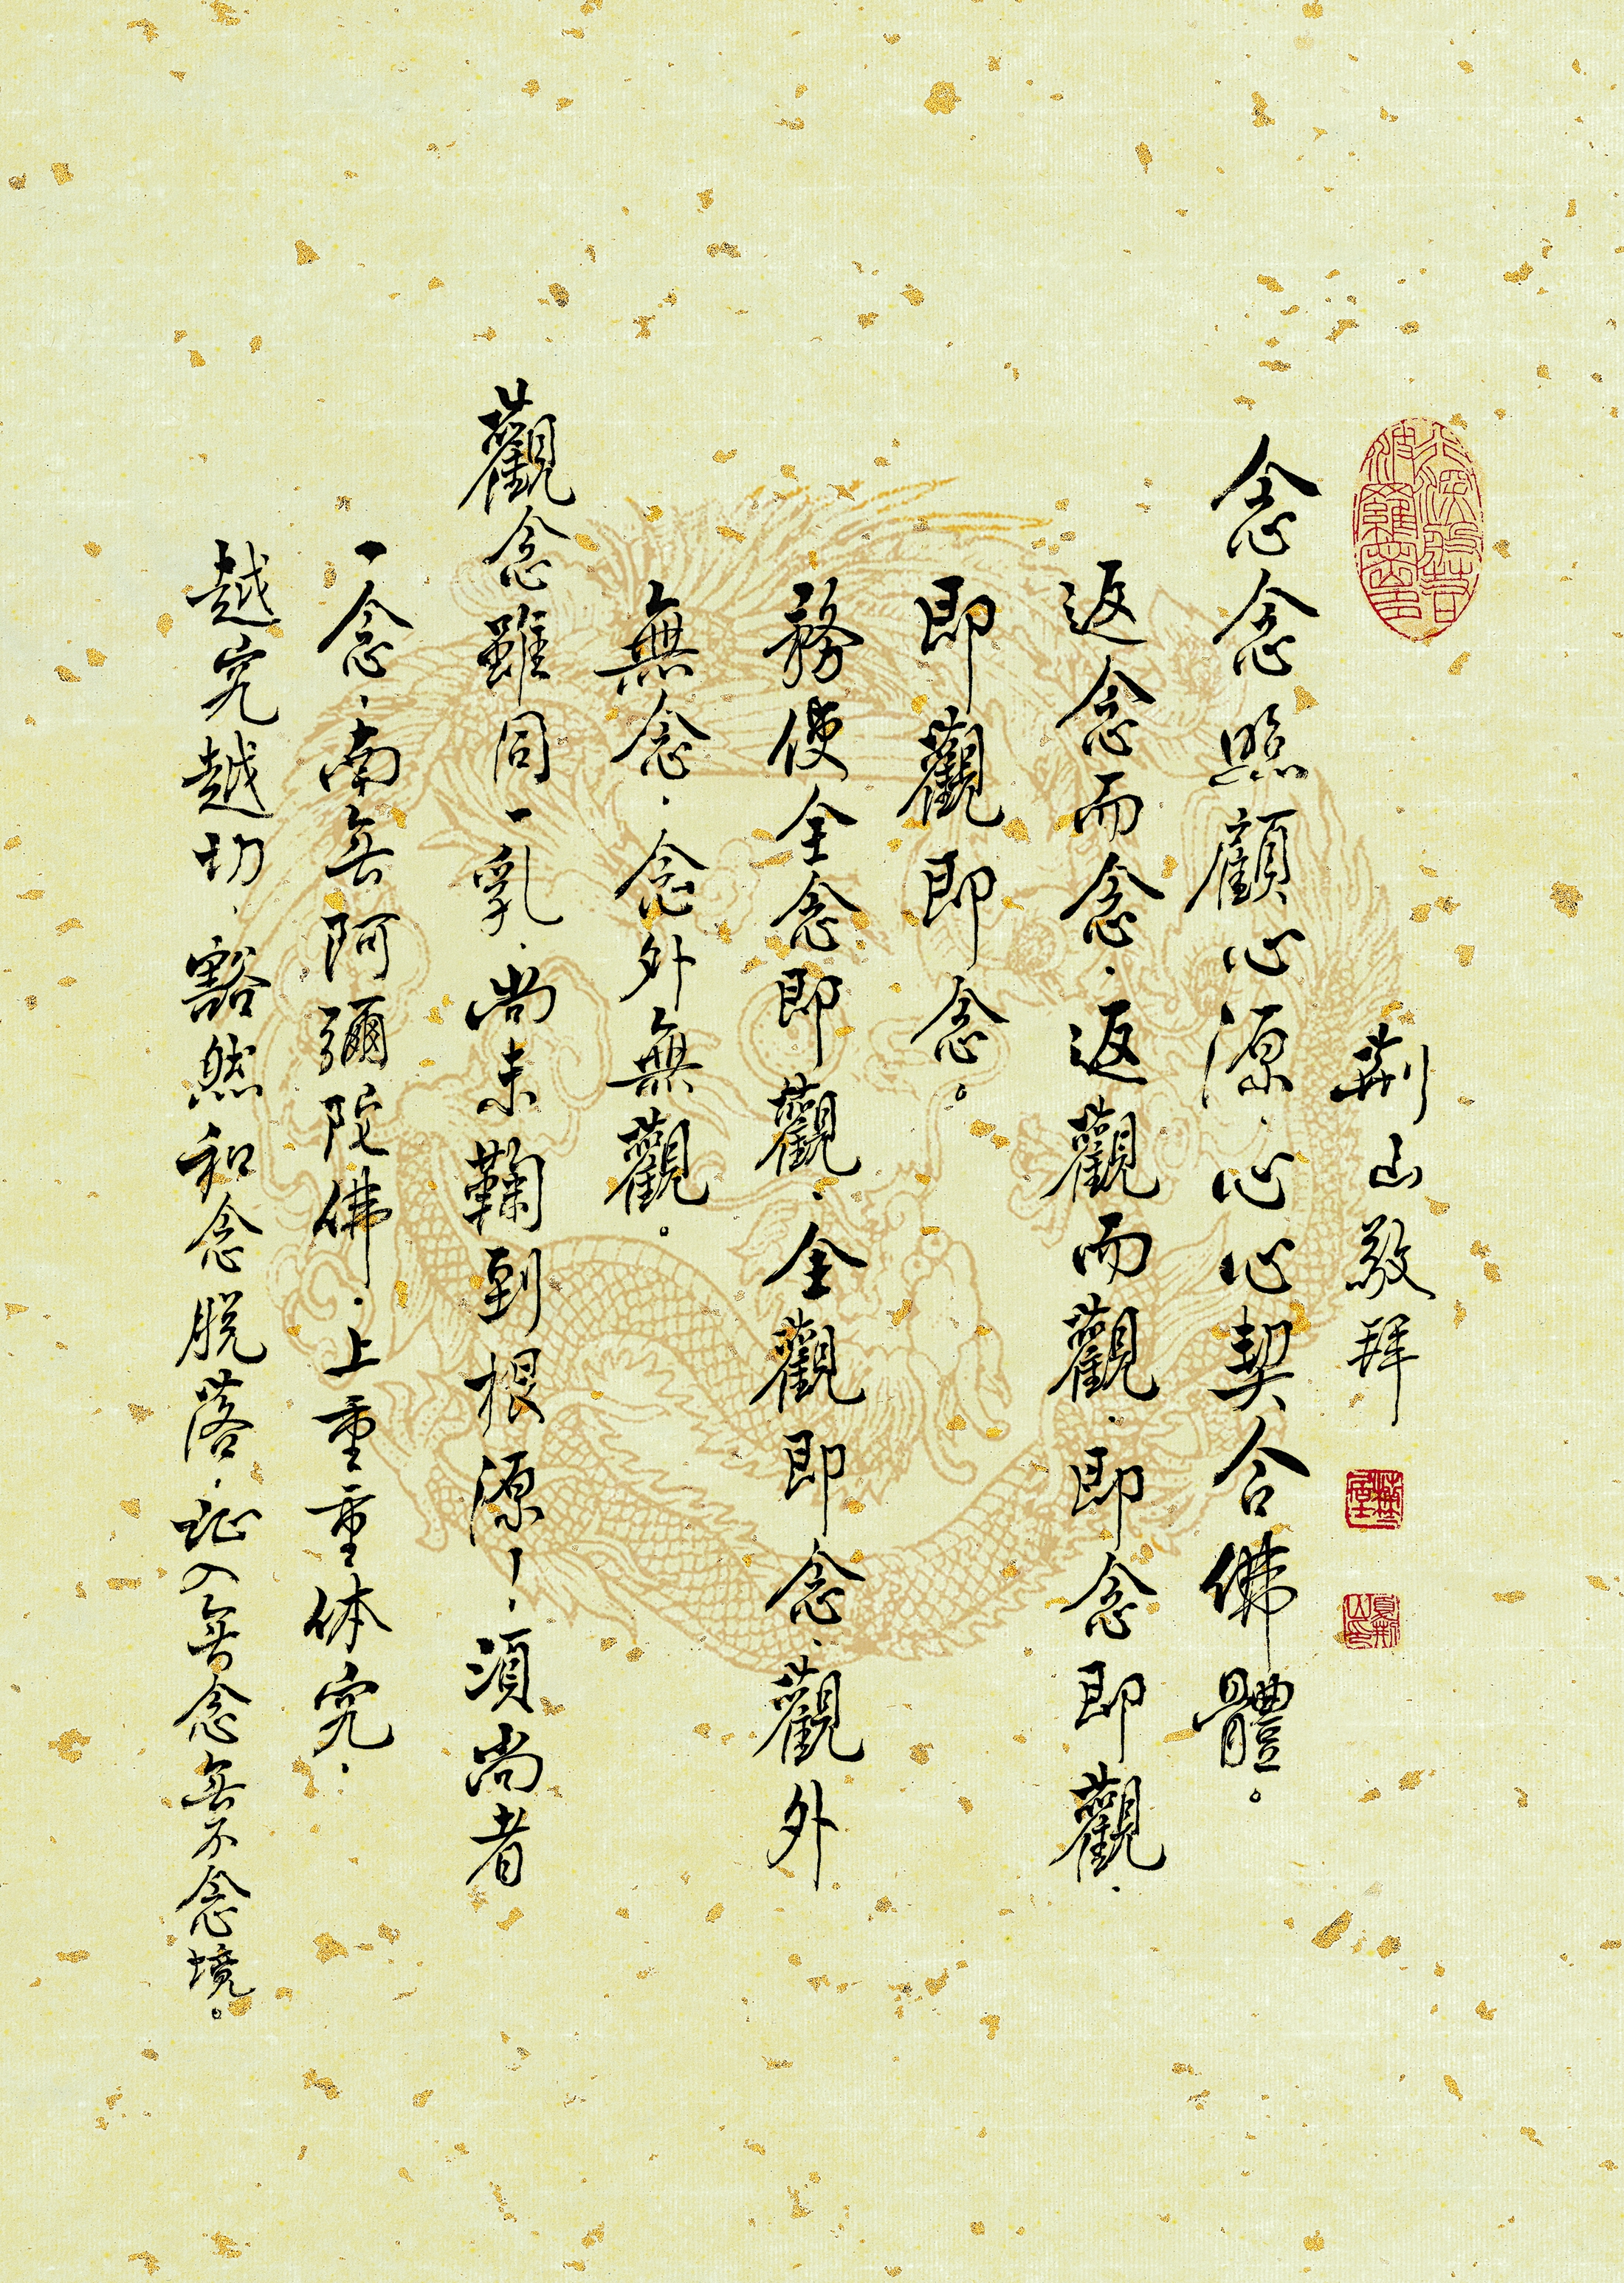 荆山敬拜
念念照顧心源．心心契合佛體。
返念而念．返觀而觀．即念即觀．
即觀即念。
務使全念即觀．全觀即念．觀外
無念．念外無觀。
觀念雖同一乳．尚未鞠到根源．須尚者
一念．南無阿彌陀佛．上重重体究．
越究越切．豁然和念脱落．証入無念無不念境。